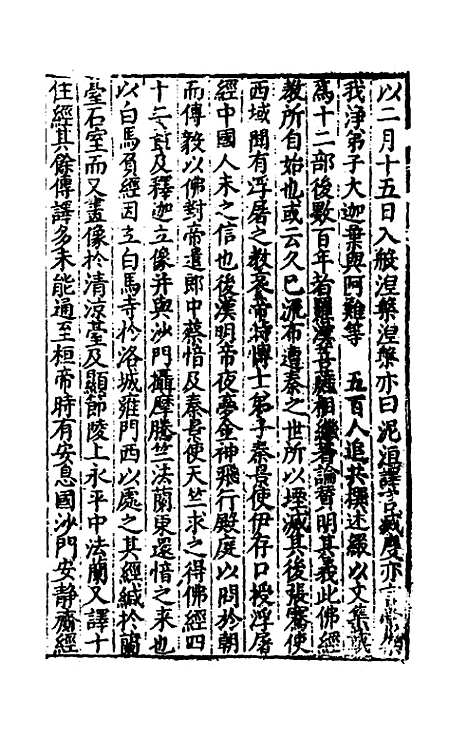 以二月十五日入般涅槃涅槃亦曰泥洹譯言滅度亦言常樂
我淨弟子大迦葉與阿難等 五百人追共撰述綴以文集
爲十二部後數百年有羅漢菩薩相繼著論贊明其義此佛經
教所自始也或云久已流布遭秦之世所以堙滅其後張騫使
西域聞有浮屠之教哀帝時博士弟子秦景使伊存口授浮屠
經中國人未之信也後漢明帝夜夢金神飛行殿庭以問於朝
而傳毅以佛對帝遣郎中蔡愔及秦景使天竺求之得佛經四
十二章及釋迦立像并與沙門攝摩騰竺法蘭東還愔之來也
以白馬負經因立白馬寺於洛城雍門西以處之其經緘於蘭
臺石室而又畫像於清凉臺及顯節陵上永平中法蘭又譯十
住經其餘傳譯多未能通至桓帝時有安息國沙門安靜齎經